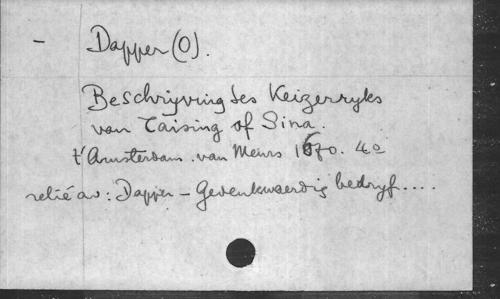 – Dapper (O).
Beschrijving des Keizerryks
van Taising of Sina.
t'Amsterdam. van Meurs 1670. 4o
relié av: Dapper – Gedenkwaerdig bedryf....